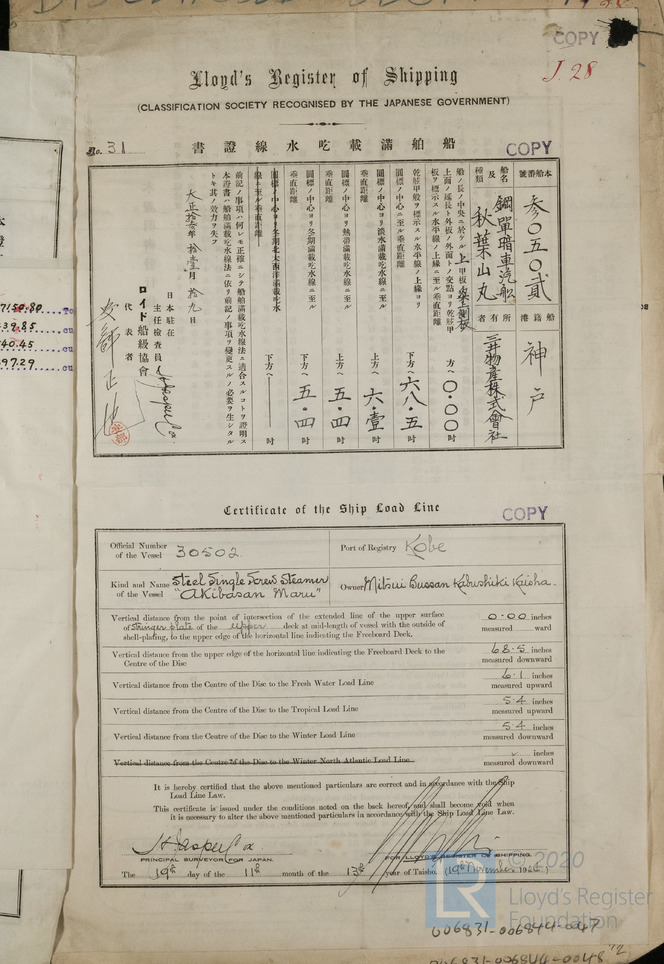 COPY
J. 28
Lloyd's Register of Shipping
(CLASSIFICATION SOCIETY RECOGNISED BY THE JAPANESE GOVERNMENT)
No. 31
書證線水吃載滿舶船
COPY
本船番號
參〇五〇貳
船籍港
神戸
船名及種類
鋼單暗車汽船
秋葉山丸
所有者
三井物産株式會社
方へ 〇・〇〇 吋
下方へ 六八・五 吋
圓標ノ中心ヨリ淡水滿載吃水線ニ至ル垂直距離
上方へ 六・壹 吋
圓標ノ中心ヨリ熱帶滿載吃水線ニ至ル垂直距離
上方へ 五・四 吋
圓標ノ中心ヨリ冬期滿載吃水線ニ至ル垂直距離
下方へ 五・四 吋
圓標ノ中心ヨリ冬期北大西洋滿載吃水線ニ至ル垂直距離
下方へ 吋
大正拾參年拾壹月拾九日
日本駐在
主任檢査員
ロイド船級協會
代表者
Certificate of the Ship Load Line
COPY
Official Number of the Vessel 30502.
Port of Registry Kobe
Kind and Name of the Vessel Steel Single Screw Steamer "Akibasan Maru"
Owner Mitsui Bussan Kabushiki Kaisha.
Vertical distance from the point of intersection of the extended line of the upper surface
of Stringer plate of the upper deck at mid-length of vessel with the outside of
shell-plating, to the upper edge of the horizontal line indicating the Freeboard Deck.
0.00 inches
measured ward
Vertical distance from the upper edge of the horizontal line indicating the Freeboard Deck to the
Centre of the Disc
68.5 inches
measured downward
Vertical distance from the Centre of the Disc to the Fresh Water Load Line
6.1 inches
measured upward
Vertical distance from the Centre of the Disc to the Tropical Load Line
5.4 inches
measured upward
Vertical distance from the Centre of the Disc to the Winter Load Line
5.4 inches
measured downward
Vertical distance from the Centre of the Disc to the Winter North Atlantic Load Line
inches
measured downward
It is hereby certified that the above mentioned particulars are correct and in accordance with the Ship
Load Line Law.
This certificate is issued under the conditions noted on the back hereof, and shall become void when
it is necessary to alter the above mentioned particulars in accordance with the Ship Load Line Law.
PRINCIPAL SURVEYOR FOR JAPAN.
FOR LLOYD'S REGISTER OF SHIPPING.
The 19th day of the 11th month of the 13th year of Taisho. (19th November 1924)
© 2020
Lloyd's Register
Foundation
006831-006844-0047